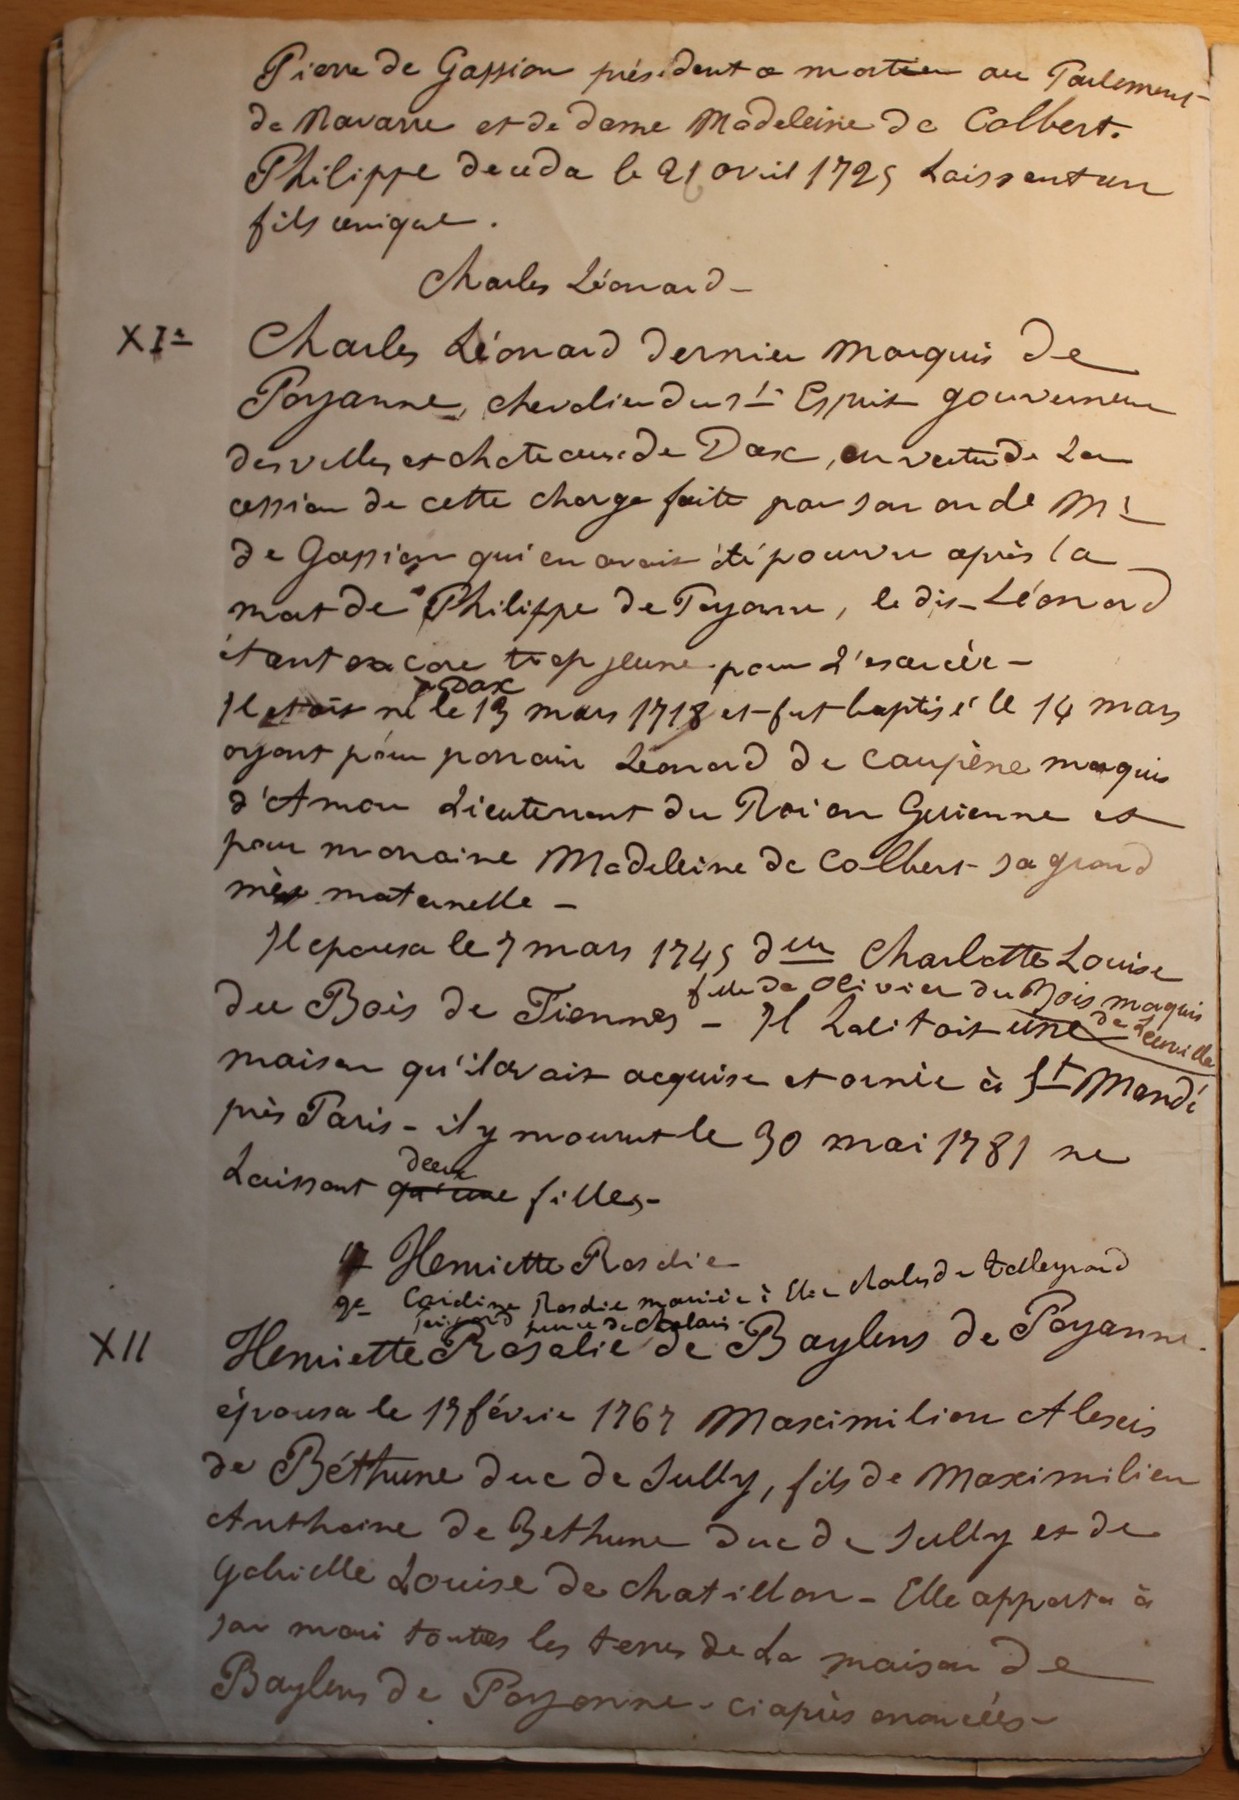 Pierre de Gassion président a mortier au Parlement
de Navarre et de dame Madeleine de Colbert.
Philippe deceda le 21 avril 1725 Laissant un
fils unique.
Charles Léonard -
XIe Charles Léonard dernier Marquis de
Poyanne, chevalier du St Esprit gouverneur
des villes et chateaux de Dax, en vertu de La
cession de cette charge faite par son oncle Mr
de Gassion qui en avait été pourvu après la
mort de Philippe de Poyanne, le dit Léonard
étant encore trop jeune pour l'exercér -
à Dax
Il etait né le 13 mars 1718 et fut baptisé le 14 mars
ayant pour parrain Léonard de Caupène marquis
d'Amou Lieutenant du Roi en Guienne et
pour marraine Madeleine de Colbert sa grand
mère maternelle -
Il epousa le 7 mars 1745 delle Charlotte Louise
fille de Olivier du Bois marquis
du Bois de Fiennes - Il habitait une de Leuville
maison qu'il avait acquise et ornée à St Mandé
près Paris - il y mourut le 30 mai 1781 ne
deux
Laissant qu'une filles -
1e Henriette Rosalie -
2e Caroline Rosalie mariée à Elie Charles de Talleyrand
perigord prince de Chalais -
XII Henriette Rosalie de Baylens de Poyanne.
épousa le 17 févrie 1767 Maximilien Alexis
de Béthune duc de Sully, fils de Maximilien
Anthoine de Bethune duc de Sully et de
Gabrielle Louise de Chatillon - Elle apporta à
son mari toutes les terres de La maison de
Baylens de Poyanne - ci après enoncées -